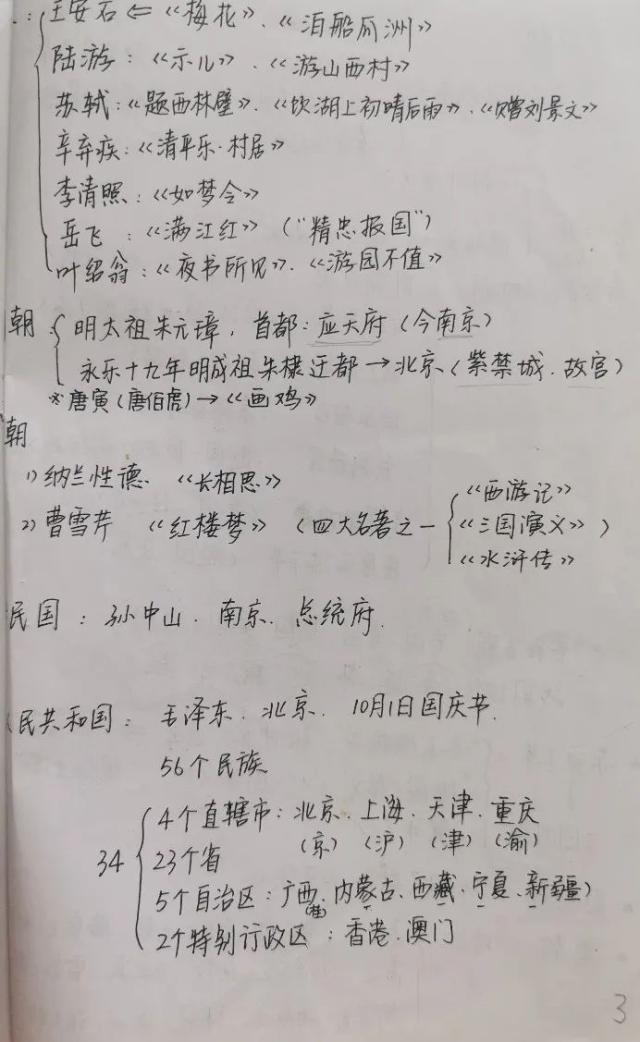 : 王安石 ⇐ 《梅花》、《泊船瓜洲》
陆游：《示儿》、《游山西村》
苏轼：《题西林壁》、《饮湖上初晴后雨》、《赠刘景文》
辛弃疾：《清平乐·村居》
李清照：《如梦令》
岳飞：《满江红》（"精忠报国"）
叶绍翁：《夜书所见》、《游园不值》
朝 明太祖朱元璋，首都：应天府（今南京）
永乐十九年明成祖朱棣迁都→北京（紫禁城、故宫）
※唐寅（唐伯虎）→《画鸡》
朝
1）纳兰性德、《长相思》
2）曹雪芹 《红楼梦》（四大名著之一 《西游记》
《三国演义》）
《水浒传》
民国：孙中山．南京．总统府．
民共和国：毛泽东．北京．10月1日国庆节．
56个民族
34 4个直辖市：北京．上海．天津．重庆
（京）（沪）（津）（渝）
23个省
5个自治区：广西、内蒙古、西藏、宁夏、新疆）
（桂）
2个特别行政区：香港．澳门
3